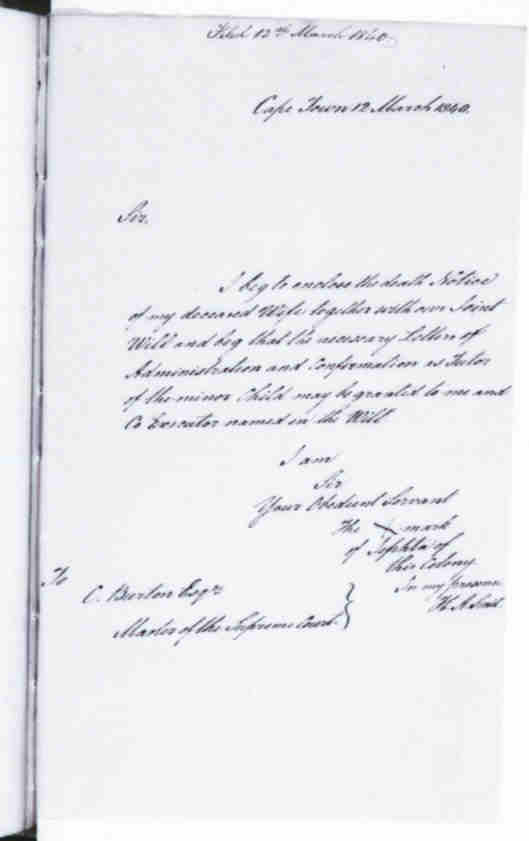 Filed 12th March 1840.
Cape Town 12 March 1840.
Sir.
I beg to enclose the death Notice
of my deceased Wife together with our Joint
Will and beg that the necessary Letters of
Administration and Confirmation as Tutor
of the minor Child may be granted to me and
Co Executor named in the Will
I am
Sir
Your Obedient Servant
The mark
of Jephta of
this Colony
In my presence
To
C. Burton Esqre
Master of the Supreme Court.